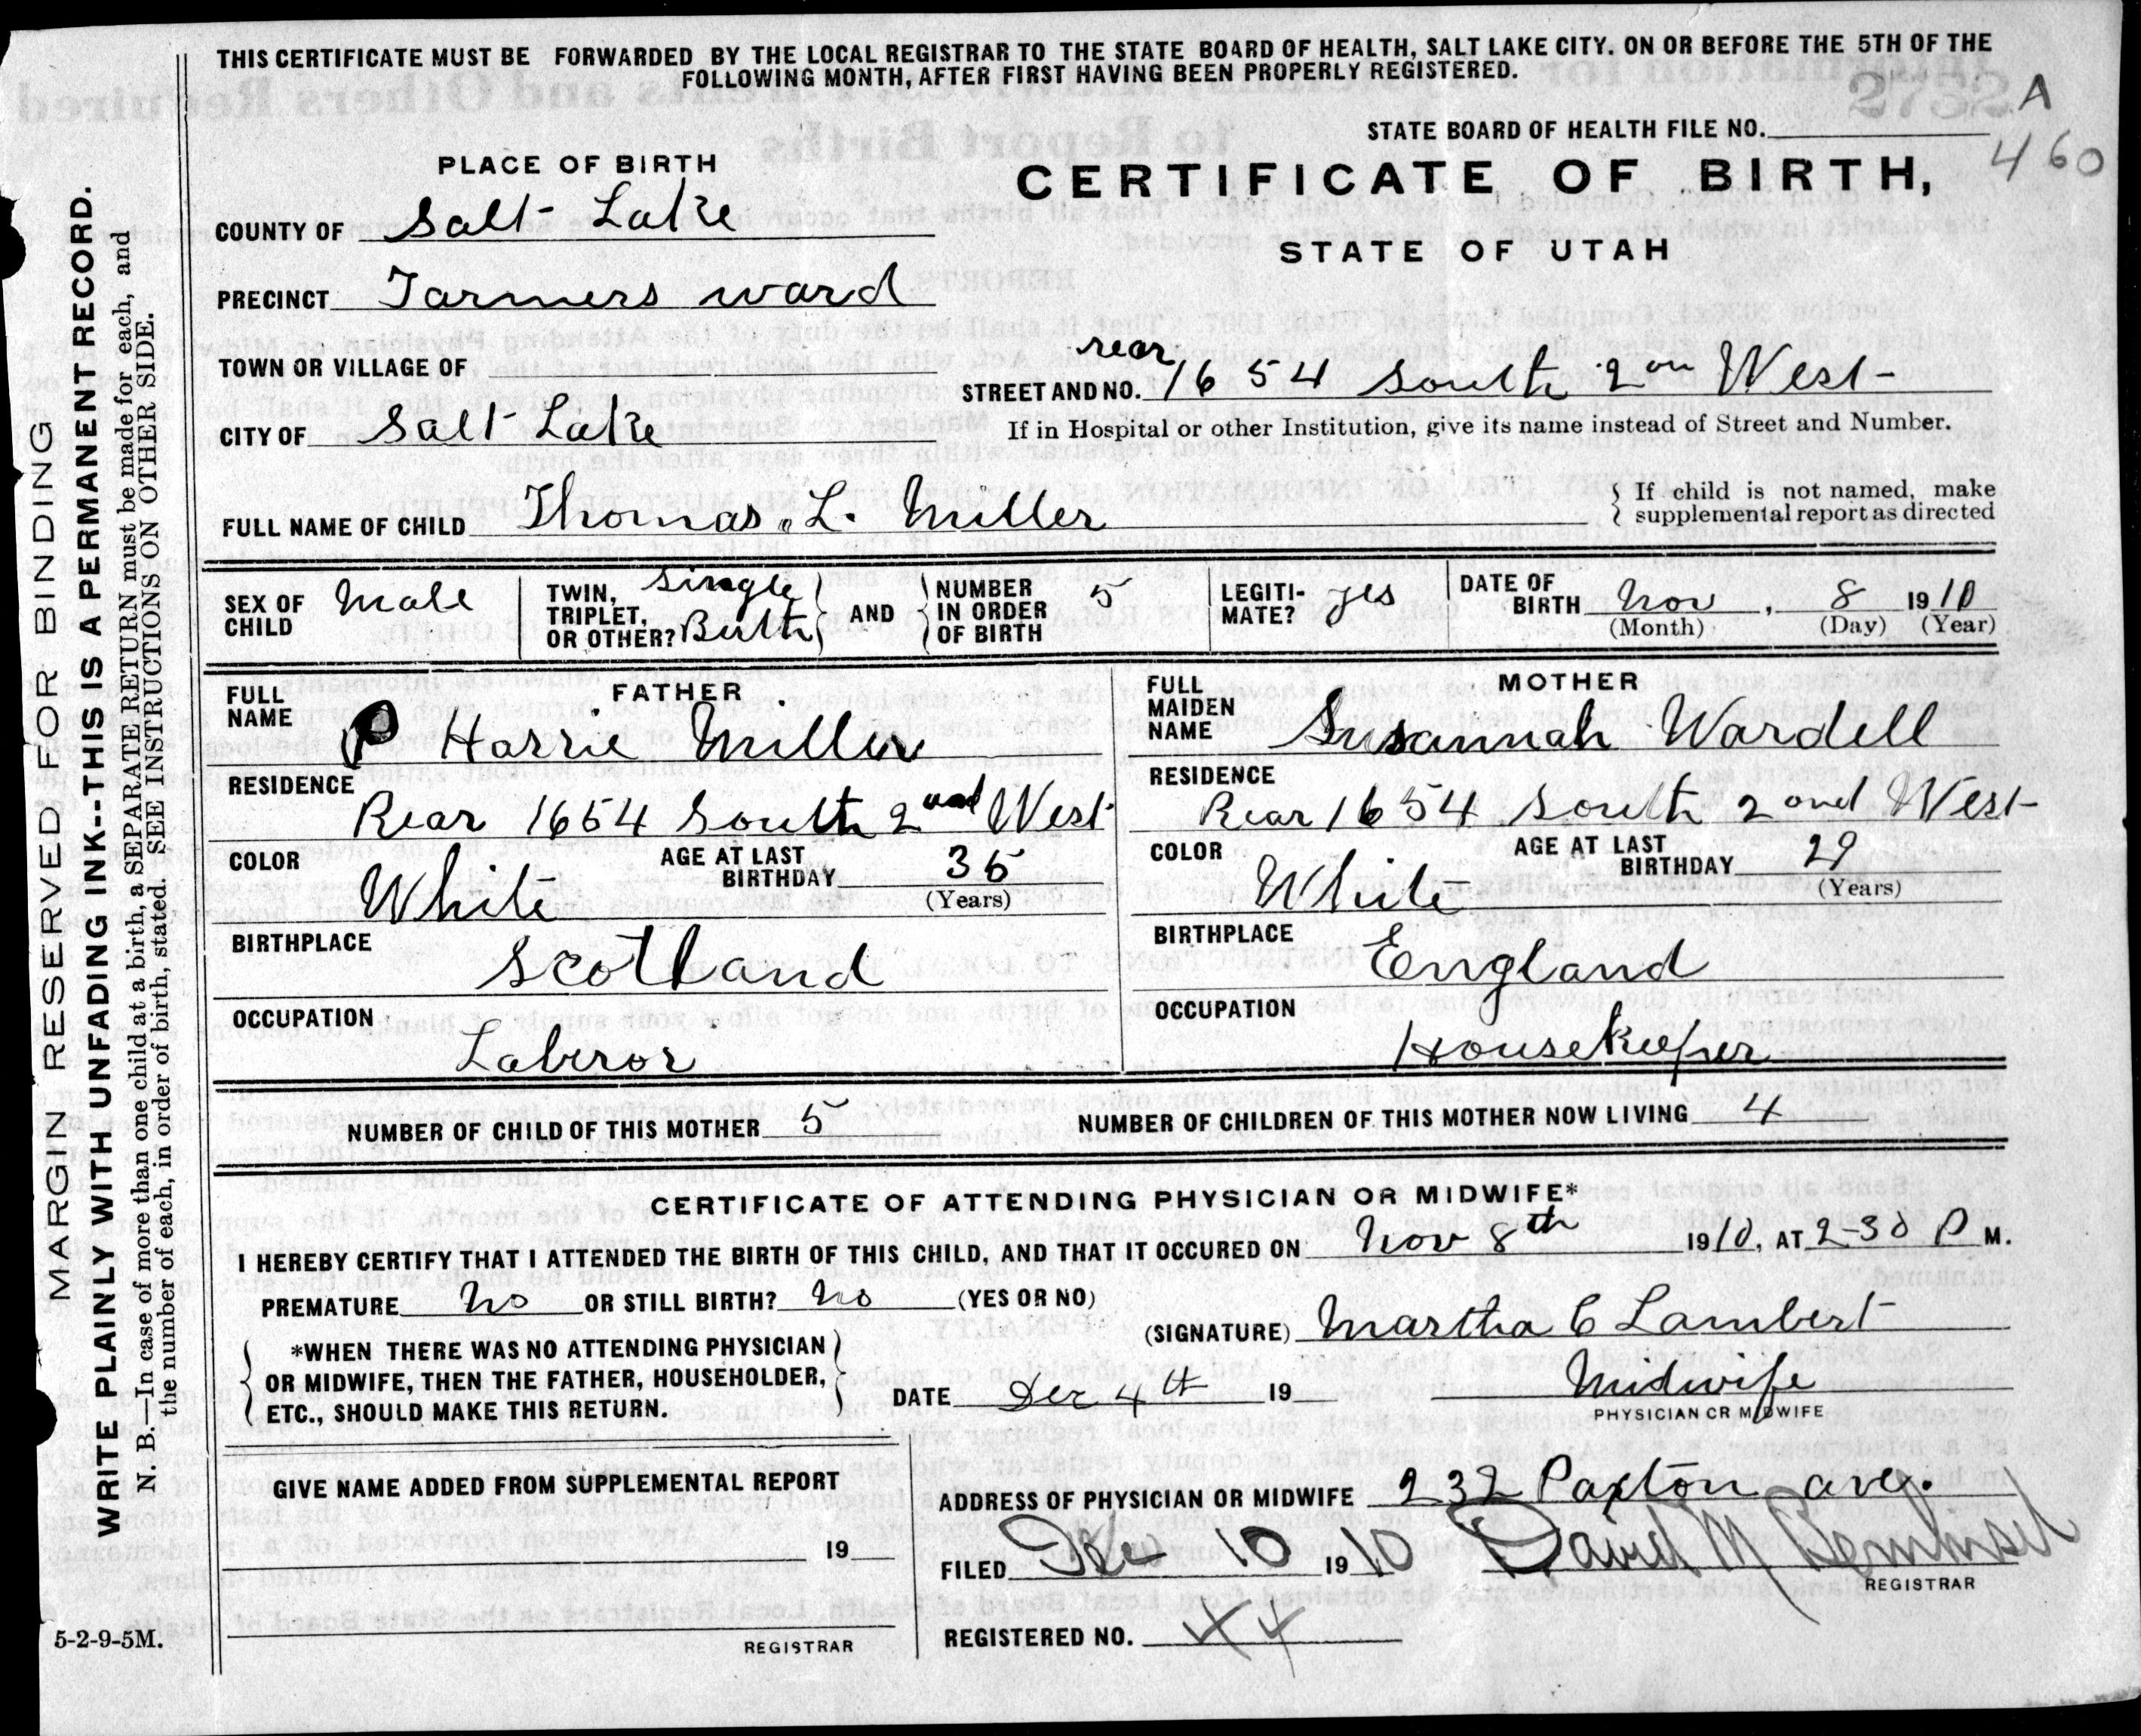 THIS CERTIFICATE MUST BE FORWARDED BY THE LOCAL REGISTRAR TO THE STATE BOARD OF HEALTH, SALT LAKE CITY. ON OR BEFORE THE 5TH OF THE
FOLLOWING MONTH, AFTER FIRST HAVING BEEN PROPERLY REGISTERED.
2752 A
STATE BOARD OF HEALTH FILE NO.
460
PLACE OF BIRTH
CERTIFICATE OF BIRTH,
STATE OF UTAH
COUNTY OF Salt Lake
PRECINCT Farmers ward
TOWN OR VILLAGE OF
STREET AND NO. rear 1654 South 2nd West
CITY OF Salt Lake
If in Hospital or other Institution, give its name instead of Street and Number.
FULL NAME OF CHILD Thomas L. Miller
If child is not named, make
supplemental report as directed
SEX OF CHILD Male
TWIN, TRIPLET, OR OTHER? Single Birth
AND
NUMBER IN ORDER OF BIRTH 5
LEGITI-MATE? yes
DATE OF BIRTH Nov, 8 1910
(Month) (Day) (Year)
FATHER
FULL NAME P Harrie Miller
RESIDENCE Rear 1654 South 2nd West
COLOR White
AGE AT LAST BIRTHDAY 35
(Years)
BIRTHPLACE Scotland
OCCUPATION Laberor
MOTHER
FULL MAIDEN NAME Susannah Wardell
RESIDENCE Rear 1654 South 2nd West
COLOR White
AGE AT LAST BIRTHDAY 29
(Years)
BIRTHPLACE England
OCCUPATION Housekeeper
NUMBER OF CHILD OF THIS MOTHER 5
NUMBER OF CHILDREN OF THIS MOTHER NOW LIVING 4
CERTIFICATE OF ATTENDING PHYSICIAN OR MIDWIFE*
I HEREBY CERTIFY THAT I ATTENDED THE BIRTH OF THIS CHILD, AND THAT IT OCCURED ON Nov 8th 1910, AT 2-30 P M.
PREMATURE No OR STILL BIRTH? No (YES OR NO)
(SIGNATURE) Martha C Lambert
*WHEN THERE WAS NO ATTENDING PHYSICIAN
OR MIDWIFE, THEN THE FATHER, HOUSEHOLDER,
ETC., SHOULD MAKE THIS RETURN.
DATE Dec 4th 19
Midwife
PHYSICIAN OR MIDWIFE
GIVE NAME ADDED FROM SUPPLEMENTAL REPORT
19
REGISTRAR
ADDRESS OF PHYSICIAN OR MIDWIFE 232 Paxton ave.
FILED Dec 10 1910 David M
REGISTRAR
REGISTERED NO. 44
MARGIN RESERVED FOR BINDING
WRITE PLAINLY WITH UNFADING INK--THIS IS A PERMANENT RECORD.
N. B.—In case of more than one child at a birth, a SEPARATE RETURN must be made for each, and
the number of each, in order of birth, stated. SEE INSTRUCTIONS ON OTHER SIDE.
5-2-9-5M.